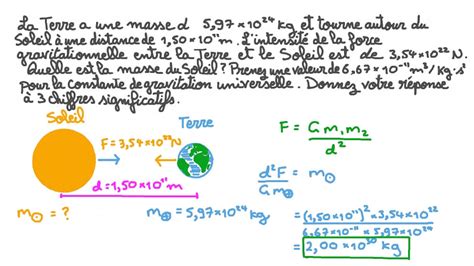 La Terre a une masse d 5,97 × 10²⁴ kg et tourne autour du
Soleil à une distance de 1,50 × 10¹¹ m. L'intensité de la force
gravitationnelle entre la Terre et le Soleil est de 3,54 × 10²² N.
Quelle est la masse du Soleil ? Prenez une valeur de 6,67 × 10⁻¹¹ m³/kg·s²
pour la constante de gravitation universelle. Donnez votre réponse
à 3 chiffres significatifs.
Soleil
Terre
F = 3,54 × 10²² N
d = 1,50 × 10¹¹ m
m☉ = ?
m⊕ = 5,97 × 10²⁴ kg
F = G m₁ m₂ / d²
d²F / G m⊕ = m☉
= (1,50 × 10¹¹)² × 3,54 × 10²² / 6,67 × 10⁻¹¹ × 5,97 × 10²⁴
= 2,00 × 10³⁰ kg